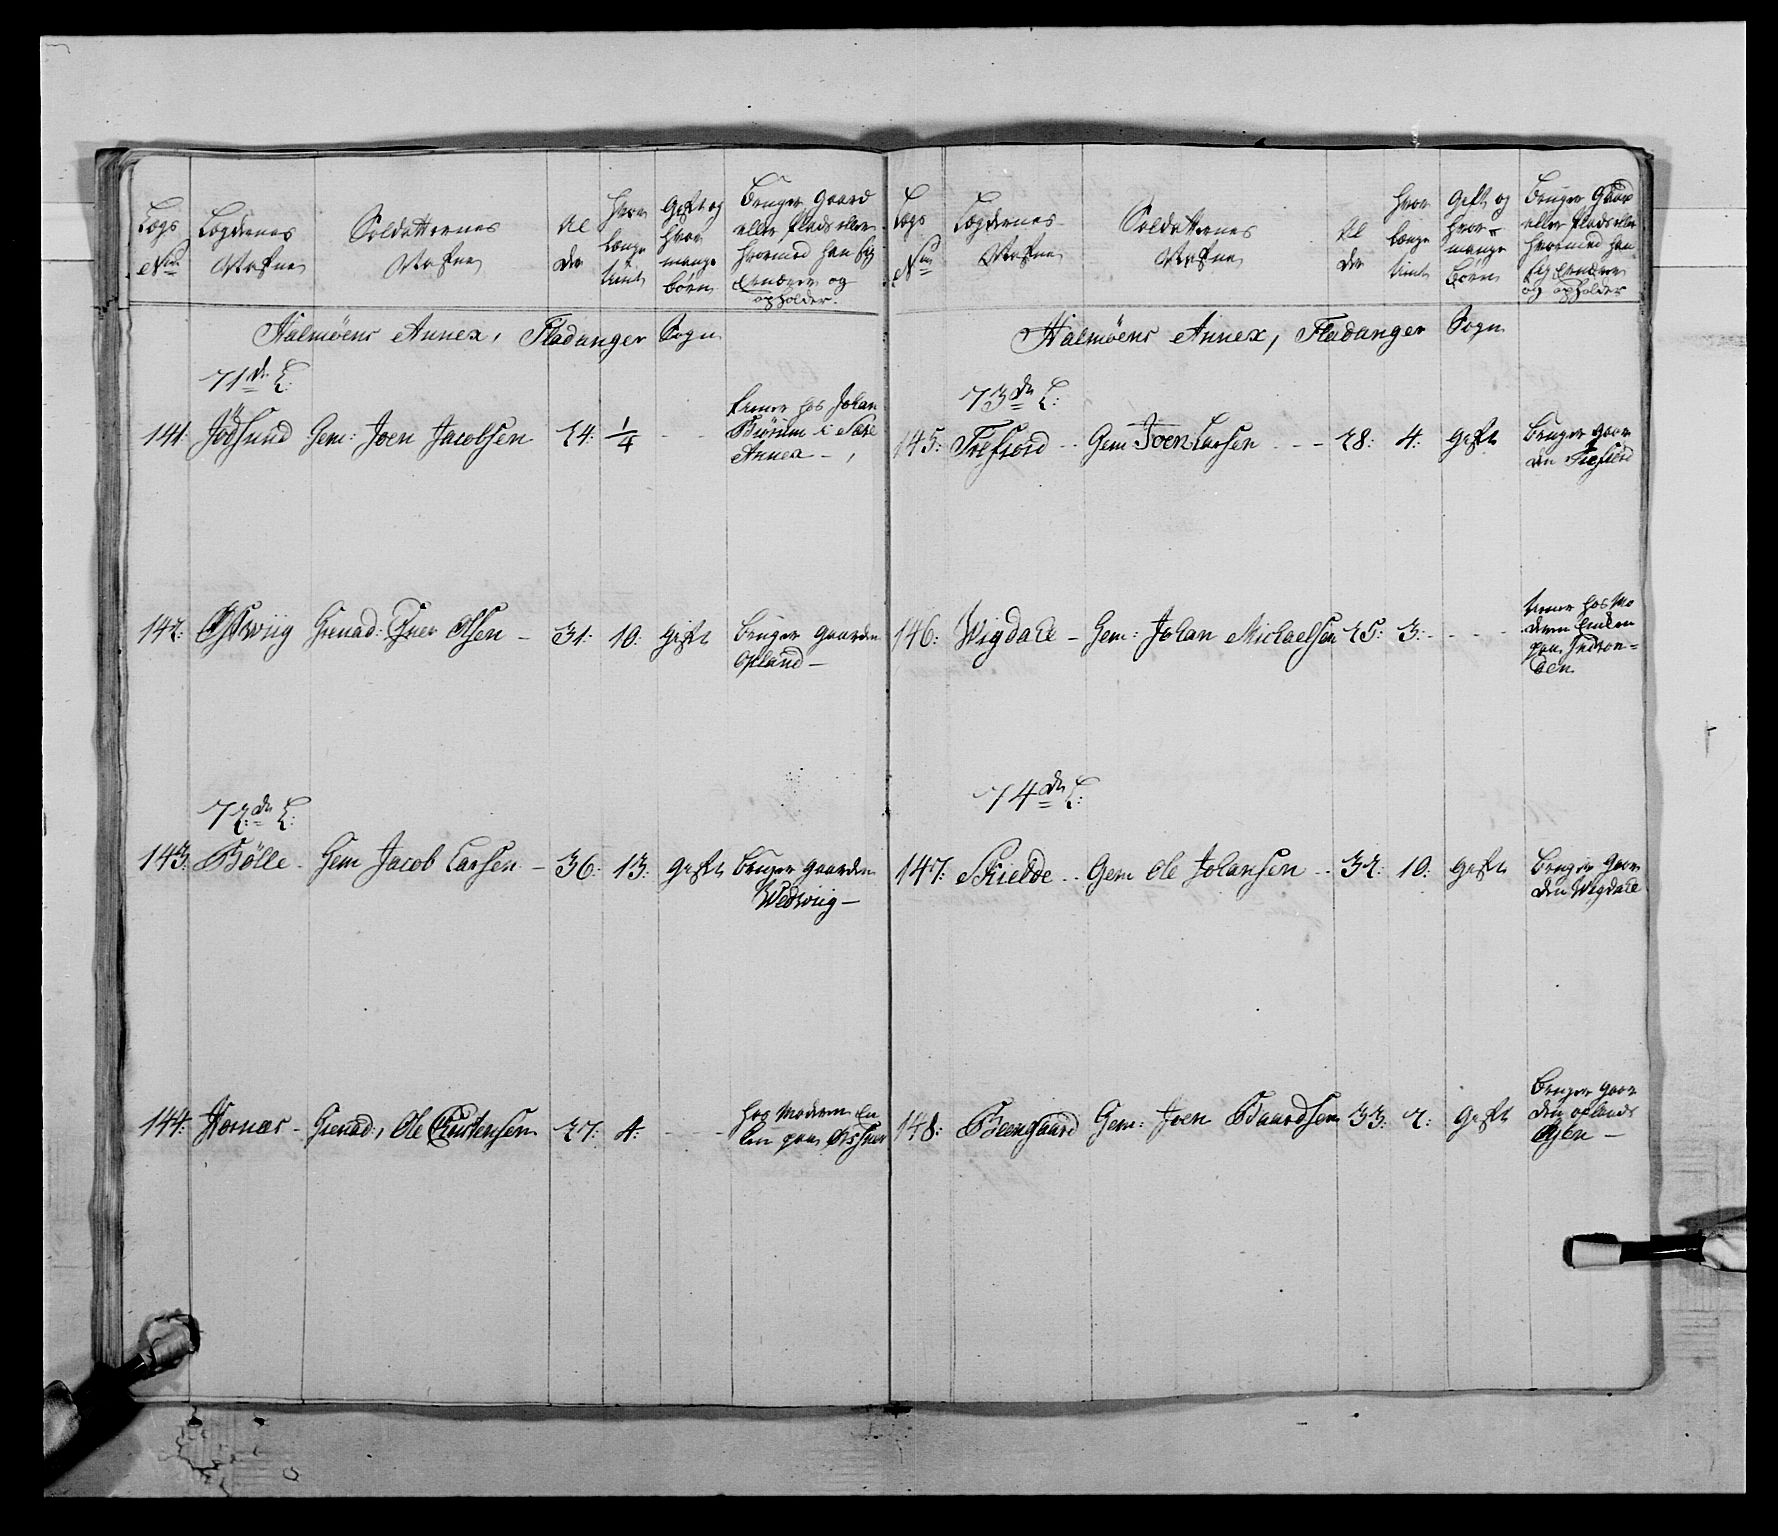 Lægs
No
Lægdernes
Nafne
Soldatternes
Nafne
Al
der
Hvor
længe
tient
Gift og
hvor
mange
börn
Bruger Gaard
eller Plads eller
hvormed han sig
ernærer og
opholder.
Halmöens Annex, Fladanger Sogn
71de L:
141. Jösund Gem: Joen Jacobsen 24: 1/4 - - tiener hos Johan
Biörum i Sære
Annex -
142: Grenad: Olsen - 31: 10: Gift bruger Gaarden
Opland -
72de L:
143: Bölle - Gem Jacob Larsen - 36: 13: Gift bruger Gaarden
Wedwiig -
144: Hornæs - Grenad: Ole Christensen 27: 4: - - hos Moderen En
ken paa
Lægs
No
Lægdernes
Nafne
Soldatternes
Nafne
Al
der
Hvor
længe
tient
Gift og
hvor
mange
börn
Bruger Gaard
eller Plads eller
hvormed han
sig ernærer
og opholder
Halmöens Annex, Fladanger Sogn
73de L:
145: Trefiord - - Gem Joen Larsen - - - 28: 4: Gift bruger Gaar
den Trefiord
146: Wigdahl - Gem: Johan Michaelsen 25: 3: - - - tiener hos Mo
deren Enken
paa
74de L:
147: Skielde - - Gem Ole Johansen - - 32: 10: Gift bruger Gaar
den Wigdahl
148: Gem: Joen 33: 2: Gift bruger Gaar
den